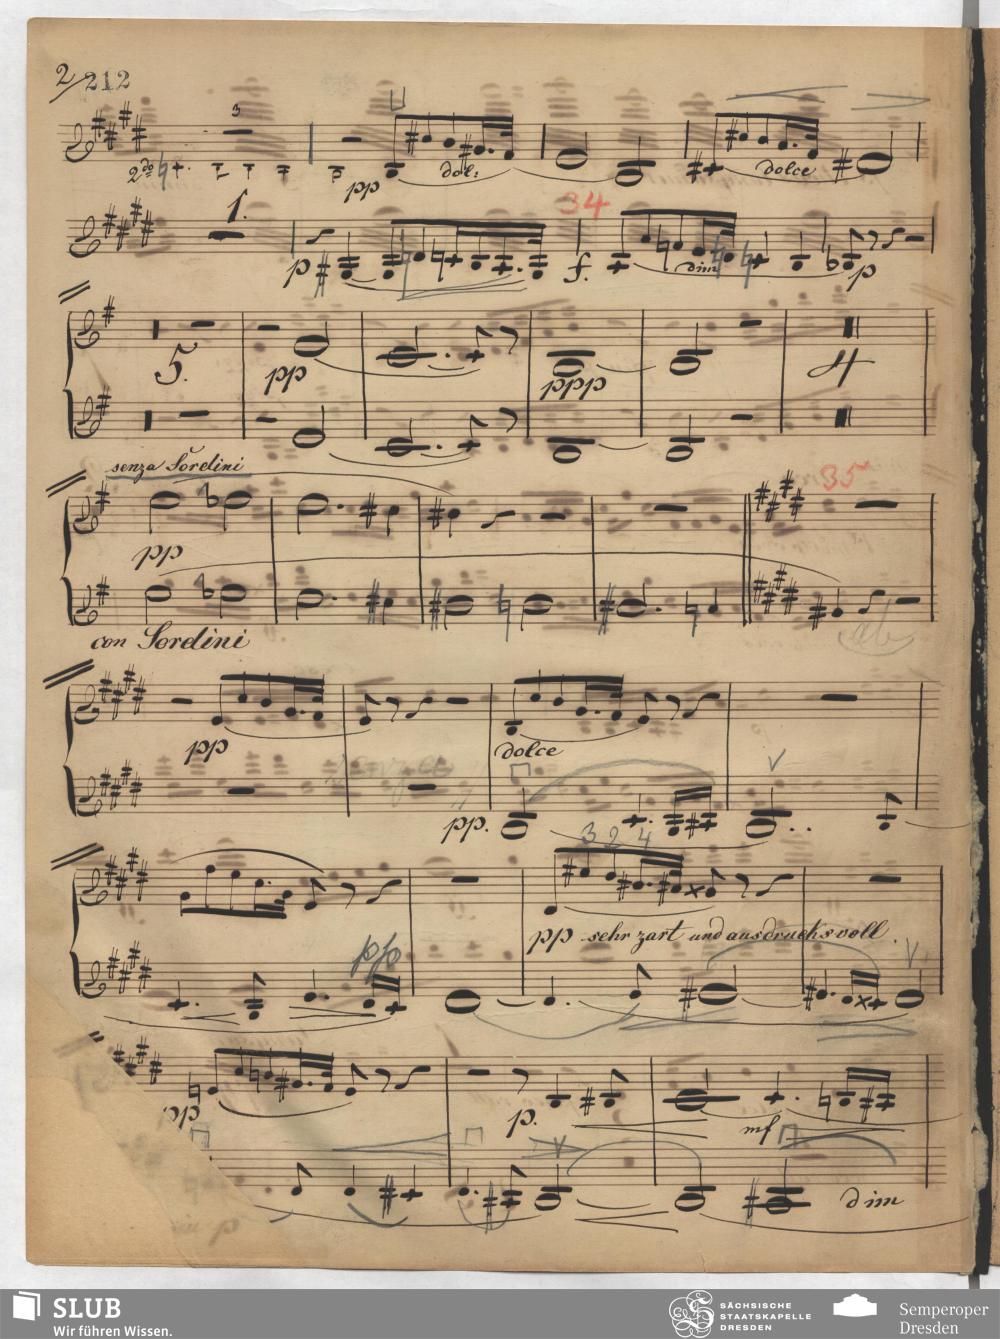 2/212
3
2do
pp dol: dolce
1.
34
p f. dim p
5. pp ppp 4
senza Sordini
35
pp
con Sordini
pp dolce
pp.
3 2 4
pp sehr zart und ausdrucksvoll.
pp
pp p. mf
dim
SLUB
Wir führen Wissen.
SÄCHSISCHE
STAATSKAPELLE
DRESDEN
Semperoper
Dresden